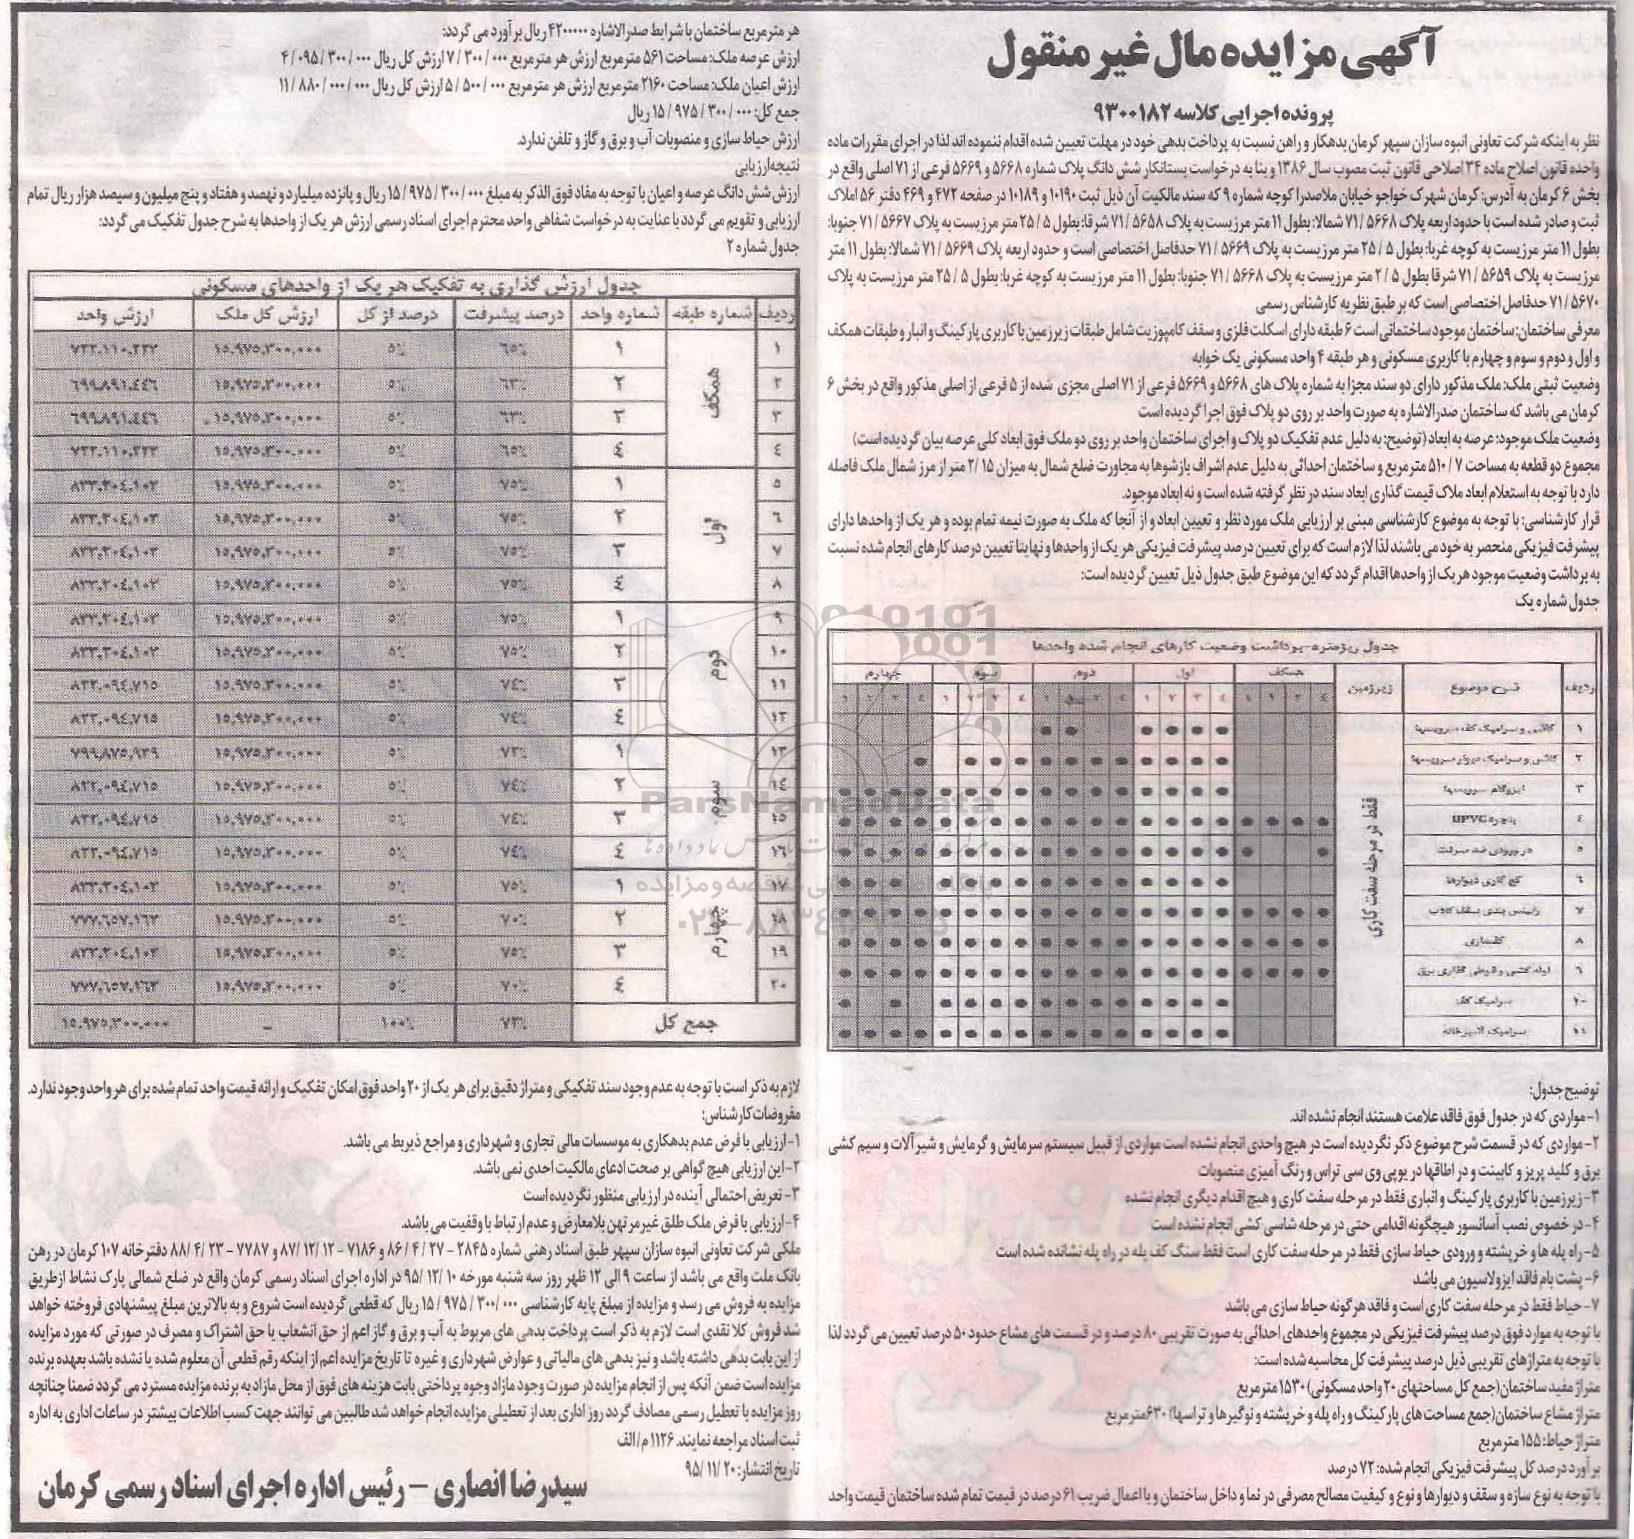 آگهی مزایده مال غیر منقول
پرونده اجرایی کلاسه ۹۳۰۰۱۸۲
نظر به اینکه شرکت تعاونی انبوه سازان سپهر کرمان بدهکار و راهن نسبت به پرداخت بدهی خود در مهلت تعیین شده اقدام ننموده اند لذا در اجرای مقررات ماده
واحده قانون اصلاح ماده ۳۴ اصلاحی قانون ثبت مصوب سال ۱۳۸۶ و بنا به درخواست بستانکار شش دانگ پلاک شماره ۵۶۶۸ و ۵۶۶۹ فرعی از ۷۱ اصلی واقع در
بخش ۶ کرمان به آدرس: کرمان شهرک خواجو خیابان ملاصدرا کوچه شماره ۹ که سند مالکیت آن ذیل ثبت ۱۰۱۹۰ و ۱۰۱۸۹ در صفحه ۴۷۲ و ۴۶۹ دفتر ۵۶ املاک
ثبت و صادر شده است با حدود اربعه پلاک ۵۶۶۸ / ۷۱ شمالا: بطول ۱۱ متر مرزیست به پلاک ۵۶۵۸ / ۷۱ شرقا: بطول ۵ / ۲۵ متر مرزیست به پلاک ۵۶۶۷ / ۷۱ جنوبا:
بطول ۱۱ متر مرزیست به کوچه غربا: بطول ۵ / ۲۵ متر مرزیست به پلاک ۵۶۶۹ / ۷۱ حدفاصل اختصاصی است و حدود اربعه پلاک ۵۶۶۹ / ۷۱ شمالا: بطول ۱۱ متر
مرزیست به پلاک ۵۶۵۹ / ۷۱ شرقا بطول ۵ / ۲ متر مرزیست به پلاک ۵۶۶۸ / ۷۱ جنوبا: بطول ۱۱ متر مرزیست به کوچه غربا: بطول ۵ / ۲۵ متر مرزیست به پلاک
۵۶۷۰ / ۷۱ حدفاصل اختصاصی است که بر طبق نظریه کارشناس رسمی
معرفی ساختمان: ساختمان موجود ساختمانی است ۶ طبقه دارای اسکلت فلزی و سقف کامپوزیت شامل طبقات زیرزمین با کاربری پارکینگ و انبار و طبقات همکف
و اول و دوم و سوم و چهارم با کاربری مسکونی و هر طبقه ۴ واحد مسکونی یک خوابه
وضعیت ثبتی ملک: ملک مذکور دارای دو سند مجزا به شماره پلاک های ۵۶۶۸ و ۵۶۶۹ فرعی از ۷۱ اصلی مجزی شده از ۵ فرعی از اصلی مذکور واقع در بخش ۶
کرمان می باشد که ساختمان صدرالاشاره به صورت واحد بر روی دو پلاک فوق اجرا گردیده است
وضعیت ملک موجود: عرصه به ابعاد (توضیح: به دلیل عدم تفکیک دو پلاک و اجرای ساختمان واحد بر روی دو ملک فوق ابعاد کلی عرصه بیان گردیده است)
مجموع دو قطعه به مساحت ۷ / ۵۱۰ مترمربع و ساختمان احداثی به دلیل عدم اشراف بازشوها به مجاورت ضلع شمال به میزان ۱۵ / ۲ متر از مرز شمال ملک فاصله
دارد با توجه به استعلام ابعاد ملاک قیمت گذاری ابعاد سند در نظر گرفته شده است و نه ابعاد موجود.
قرار کارشناسی: با توجه به موضوع کارشناسی مبنی بر ارزیابی ملک مورد نظر و تعیین ابعاد و از آنجا که ملک به صورت نیمه تمام بوده و هر یک از واحدها دارای
پیشرفت فیزیکی منحصر به خود می باشند لذا لازم است که برای تعیین درصد پیشرفت فیزیکی هر یک از واحدها و نهایتا تعیین درصد کارهای انجام شده نسبت
به برداشت وضعیت موجود هر یک از واحدها اقدام گردد که این موضوع طبق جدول ذیل تعیین گردیده است:
جدول شماره یک
جدول ریزمتره-برداشت وضعیت کارهای انجام شده واحدها
ردیف شرح موضوع زیرزمین همکف اول دوم سوم چهارم
۱ کاشی و سرامیک کف سرویسها
۲ کاشی و سرامیک دیوار سرویسها
۳ ایزوگام سرویسها
۴ پنجره UPVC
۵ در ورودی ضد سرقت
۶ گچ کاری دیوارها
۷ رابیتس بندی سقف کاذب
۸ کفسازی
۹ لوله کشی و قوطی گذاری برق
۱۰ سرامیک کف
۱۱ سرامیک آشپزخانه
فقط در مرحله سفت کاری
توضیح جدول:
۱- مواردی که در جدول فوق فاقد علامت هستند انجام نشده اند.
۲- مواردی که در قسمت شرح موضوع ذکر نگردیده است در هیچ واحدی انجام نشده است مواردی از قبیل سیستم سرمایش و گرمایش و شیرآلات و سیم کشی
برق و کلید پریز و کابینت و در اطاقها در یو پی وی سی تراس و رنگ آمیزی منصوبات
۳- زیرزمین با کاربری پارکینگ و انباری فقط در مرحله سفت کاری و هیچ اقدام دیگری انجام نشده
۴- در خصوص نصب آسانسور هیچگونه اقدامی حتی در مرحله شاسی کشی انجام نشده است
۵- راه پله ها و خرپشته و ورودی حیاط سازی فقط در مرحله سفت کاری است فقط سنگ کف پله در راه پله نشانده شده است
۶- پشت بام فاقد ایزولاسیون می باشد
۷- حیاط فقط در مرحله سفت کاری است و فاقد هرگونه حیاط سازی می باشد
با توجه به موارد فوق درصد پیشرفت فیزیکی در مجموع واحدهای احداثی به صورت تقریبی ۸۰ درصد و در قسمت های مشاع حدود ۵۰ درصد تعیین می گردد لذا
با توجه به متراژهای تقریبی ذیل درصد پیشرفت کل محاسبه شده است:
متراژ مفید ساختمان (جمع کل مساحتهای ۲۰ واحد مسکونی) ۱۵۳۰ مترمربع
متراژ مشاع ساختمان (جمع مساحت های پارکینگ و راه پله و خرپشته و نوگیرها و تراسها) ۶۳۰ مترمربع
متراژ حیاط: ۱۵۵ مترمربع
برآورد درصد کل پیشرفت فیزیکی انجام شده: ۷۲ درصد
با توجه به نوع سازه و سقف و دیوارها و نوع و کیفیت مصالح مصرفی در نما و داخل ساختمان و با اعمال ضریب ۶۱ درصد در قیمت تمام شده ساختمان قیمت واحد
هر مترمربع ساختمان با شرایط صدرالاشاره ۴۲۰۰۰۰۰ ریال برآورد می گردد:
ارزش عرصه ملک: مساحت ۵۶۱ مترمربع ارزش هر مترمربع ۰۰۰ / ۳۰۰ / ۷ ارزش کل ریال ۰۰۰ / ۳۰۰ / ۰۹۵ / ۴
ارزش اعیان ملک: مساحت ۲۱۶۰ مترمربع ارزش هر مترمربع ۰۰۰ / ۵۰۰ / ۵ ارزش کل ریال ۰۰۰ / ۰۰۰ / ۸۸۰ / ۱۱
جمع کل: ۰۰۰ / ۳۰۰ / ۹۷۵ / ۱۵ ریال
ارزش حیاط سازی و منصوبات آب و برق و گاز و تلفن ندارد.
نتیجه ارزیابی
ارزش شش دانگ عرصه و اعیان با توجه به مفاد فوق الذکر به مبلغ ۰۰۰ / ۳۰۰ / ۹۷۵ / ۱۵ ریال و پانزده میلیارد و نهصد و هفتاد و پنج میلیون و سیصد هزار ریال تمام
ارزیابی و تقویم می گردد با عنایت به درخواست شفاهی واحد محترم اجرای اسناد رسمی ارزش هر یک از واحدها به شرح جدول تفکیک می گردد:
جدول شماره ۲
جدول ارزش گذاری به تفکیک هر یک از واحدهای مسکونی
ردیف شماره طبقه شماره واحد درصد پیشرفت درصد از کل ارزش کل ملک ارزش واحد
۱ همکف ۱ ۶۵٪ ۵٪ ۱۵,۹۷۵,۳۰۰,۰۰۰ ۷۲۲,۱۱۰,۲۳۲
۲ ۲ ۶۳٪ ۵٪ ۱۵,۹۷۵,۳۰۰,۰۰۰ ۶۹۹,۸۹۱,٤٤٦
۳ ۳ ۶۳٪ ۵٪ ۱۵,۹۷۵,۳۰۰,۰۰۰ ۶۹۹,۸۹۱,٤٤٦
٤ ٤ ۶۵٪ ۵٪ ۱۵,۹۷۵,۳۰۰,۰۰۰ ۷۲۲,۱۱۰,۲۳۲
۵ اول ۱ ۷۵٪ ۵٪ ۱۵,۹۷۵,۳۰۰,۰۰۰ ۸۳۳,۲۰٤,۱۰۳
۶ ۲ ۷۵٪ ۵٪ ۱۵,۹۷۵,۳۰۰,۰۰۰ ۸۳۳,۲۰٤,۱۰۳
۷ ۳ ۷۵٪ ۵٪ ۱۵,۹۷۵,۳۰۰,۰۰۰ ۸۳۳,۲۰٤,۱۰۳
۸ ٤ ۷۵٪ ۵٪ ۱۵,۹۷۵,۳۰۰,۰۰۰ ۸۳۳,۲۰٤,۱۰۳
۹ دوم ۱ ۷۵٪ ۵٪ ۱۵,۹۷۵,۳۰۰,۰۰۰ ۸۳۳,۲۰٤,۱۰۳
۱۰ ۲ ۷۵٪ ۵٪ ۱۵,۹۷۵,۳۰۰,۰۰۰ ۸۳۳,۲۰٤,۱۰۳
۱۱ ۳ ۷٤٪ ۵٪ ۱۵,۹۷۵,۳۰۰,۰۰۰ ۸۲۲,۰۹٤,۷۱۵
۱۲ ٤ ۷٤٪ ۵٪ ۱۵,۹۷۵,۳۰۰,۰۰۰ ۸۲۲,۰۹٤,۷۱۵
۱۳ سوم ۱ ۷۲٪ ۵٪ ۱۵,۹۷۵,۳۰۰,۰۰۰ ۷۹۹,۸۷۵,۹۳۹
۱٤ ۲ ۷٤٪ ۵٪ ۱۵,۹۷۵,۳۰۰,۰۰۰ ۸۲۲,۰۹٤,۷۱۵
۱۵ ۳ ۷٤٪ ۵٪ ۱۵,۹۷۵,۳۰۰,۰۰۰ ۸۲۲,۰۹٤,۷۱۵
۱۶ ٤ ۷٤٪ ۵٪ ۱۵,۹۷۵,۳۰۰,۰۰۰ ۸۲۲,۰۹٤,۷۱۵
۱۷ چهارم ۱ ۷۵٪ ۵٪ ۱۵,۹۷۵,۳۰۰,۰۰۰ ۸۳۳,۲۰٤,۱۰۳
۱۸ ۲ ۷۰٪ ۵٪ ۱۵,۹۷۵,۳۰۰,۰۰۰ ۷۷۷,۶۵۷,۱۶۳
۱۹ ۳ ۷۵٪ ۵٪ ۱۵,۹۷۵,۳۰۰,۰۰۰ ۸۳۳,۲۰٤,۱۰۳
۲۰ ٤ ۷۰٪ ۵٪ ۱۵,۹۷۵,۳۰۰,۰۰۰ ۷۷۷,۶۵۷,۱۶۳
جمع کل ۷۲٪ ۱۰۰٪ – ۱۵,۹۷۵,۳۰۰,۰۰۰
لازم به ذکر است با توجه به عدم وجود سند تفکیکی و متراژ دقیق برای هر یک از ۲۰ واحد فوق امکان تفکیک و ارائه قیمت واحد تمام شده برای هر واحد وجود ندارد.
مفروضات کارشناس:
۱- ارزیابی با فرض عدم بدهکاری به موسسات مالی تجاری و شهرداری و مراجع ذیربط می باشد.
۲- این ارزیابی هیچ گواهی بر صحت ادعای مالکیت احدی نمی باشد.
۳- تعریض احتمالی آینده در ارزیابی منظور نگردیده است
۴- ارزیابی با فرض ملک طلق غیر مرتهن بلامعارض و عدم ارتباط با وقفیت می باشد.
ملکی شرکت تعاونی انبوه سازان سپهر طبق اسناد رهنی شماره ۲۸۴۵ - ۲۷ / ۴ / ۸۶ و ۷۱۸۶ - ۱۲ / ۱۲ / ۸۷ و ۷۷۸۷ - ۲۳ / ۴ / ۸۸ دفترخانه ۱۰۷ کرمان در رهن
بانک ملت واقع می باشد از ساعت ۹ الی ۱۲ ظهر روز سه شنبه مورخه ۱۰ / ۱۲ / ۹۵ در اداره اجرای اسناد رسمی کرمان واقع در ضلع شمالی پارک نشاط از طریق
مزایده به فروش می رسد و مزایده از مبلغ پایه کارشناسی ۰۰۰ / ۳۰۰ / ۹۷۵ / ۱۵ ریال که قطعی گردیده است شروع و به بالاترین مبلغ پیشنهادی فروخته خواهد
شد فروش کلا نقدی است لازم به ذکر است پرداخت بدهی های مربوط به آب و برق و گاز اعم از حق انشعاب یا حق اشتراک و مصرف در صورتی که مورد مزایده
از این بابت بدهی داشته باشد و نیز بدهی های مالیاتی و عوارض شهرداری و غیره تا تاریخ مزایده اعم از اینکه رقم قطعی آن معلوم شده یا نشده باشد بعهده برنده
مزایده است ضمن آنکه پس از انجام مزایده در صورت وجود مازاد وجوه پرداختی بابت هزینه های فوق از محل مازاد به برنده مزایده مسترد می گردد ضمنا چنانچه
روز مزایده با تعطیل رسمی مصادف گردد روز اداری بعد از تعطیلی مزایده انجام خواهد شد طالبین می توانند جهت کسب اطلاعات بیشتر در ساعات اداری به اداره
ثبت اسناد مراجعه نمایند. ۱۱۲۶ م/الف
تاریخ انتشار: ۲۰ / ۱۱ / ۹۵
سیدرضا انصاری – رئیس اداره اجرای اسناد رسمی کرمان
ParsNamadData